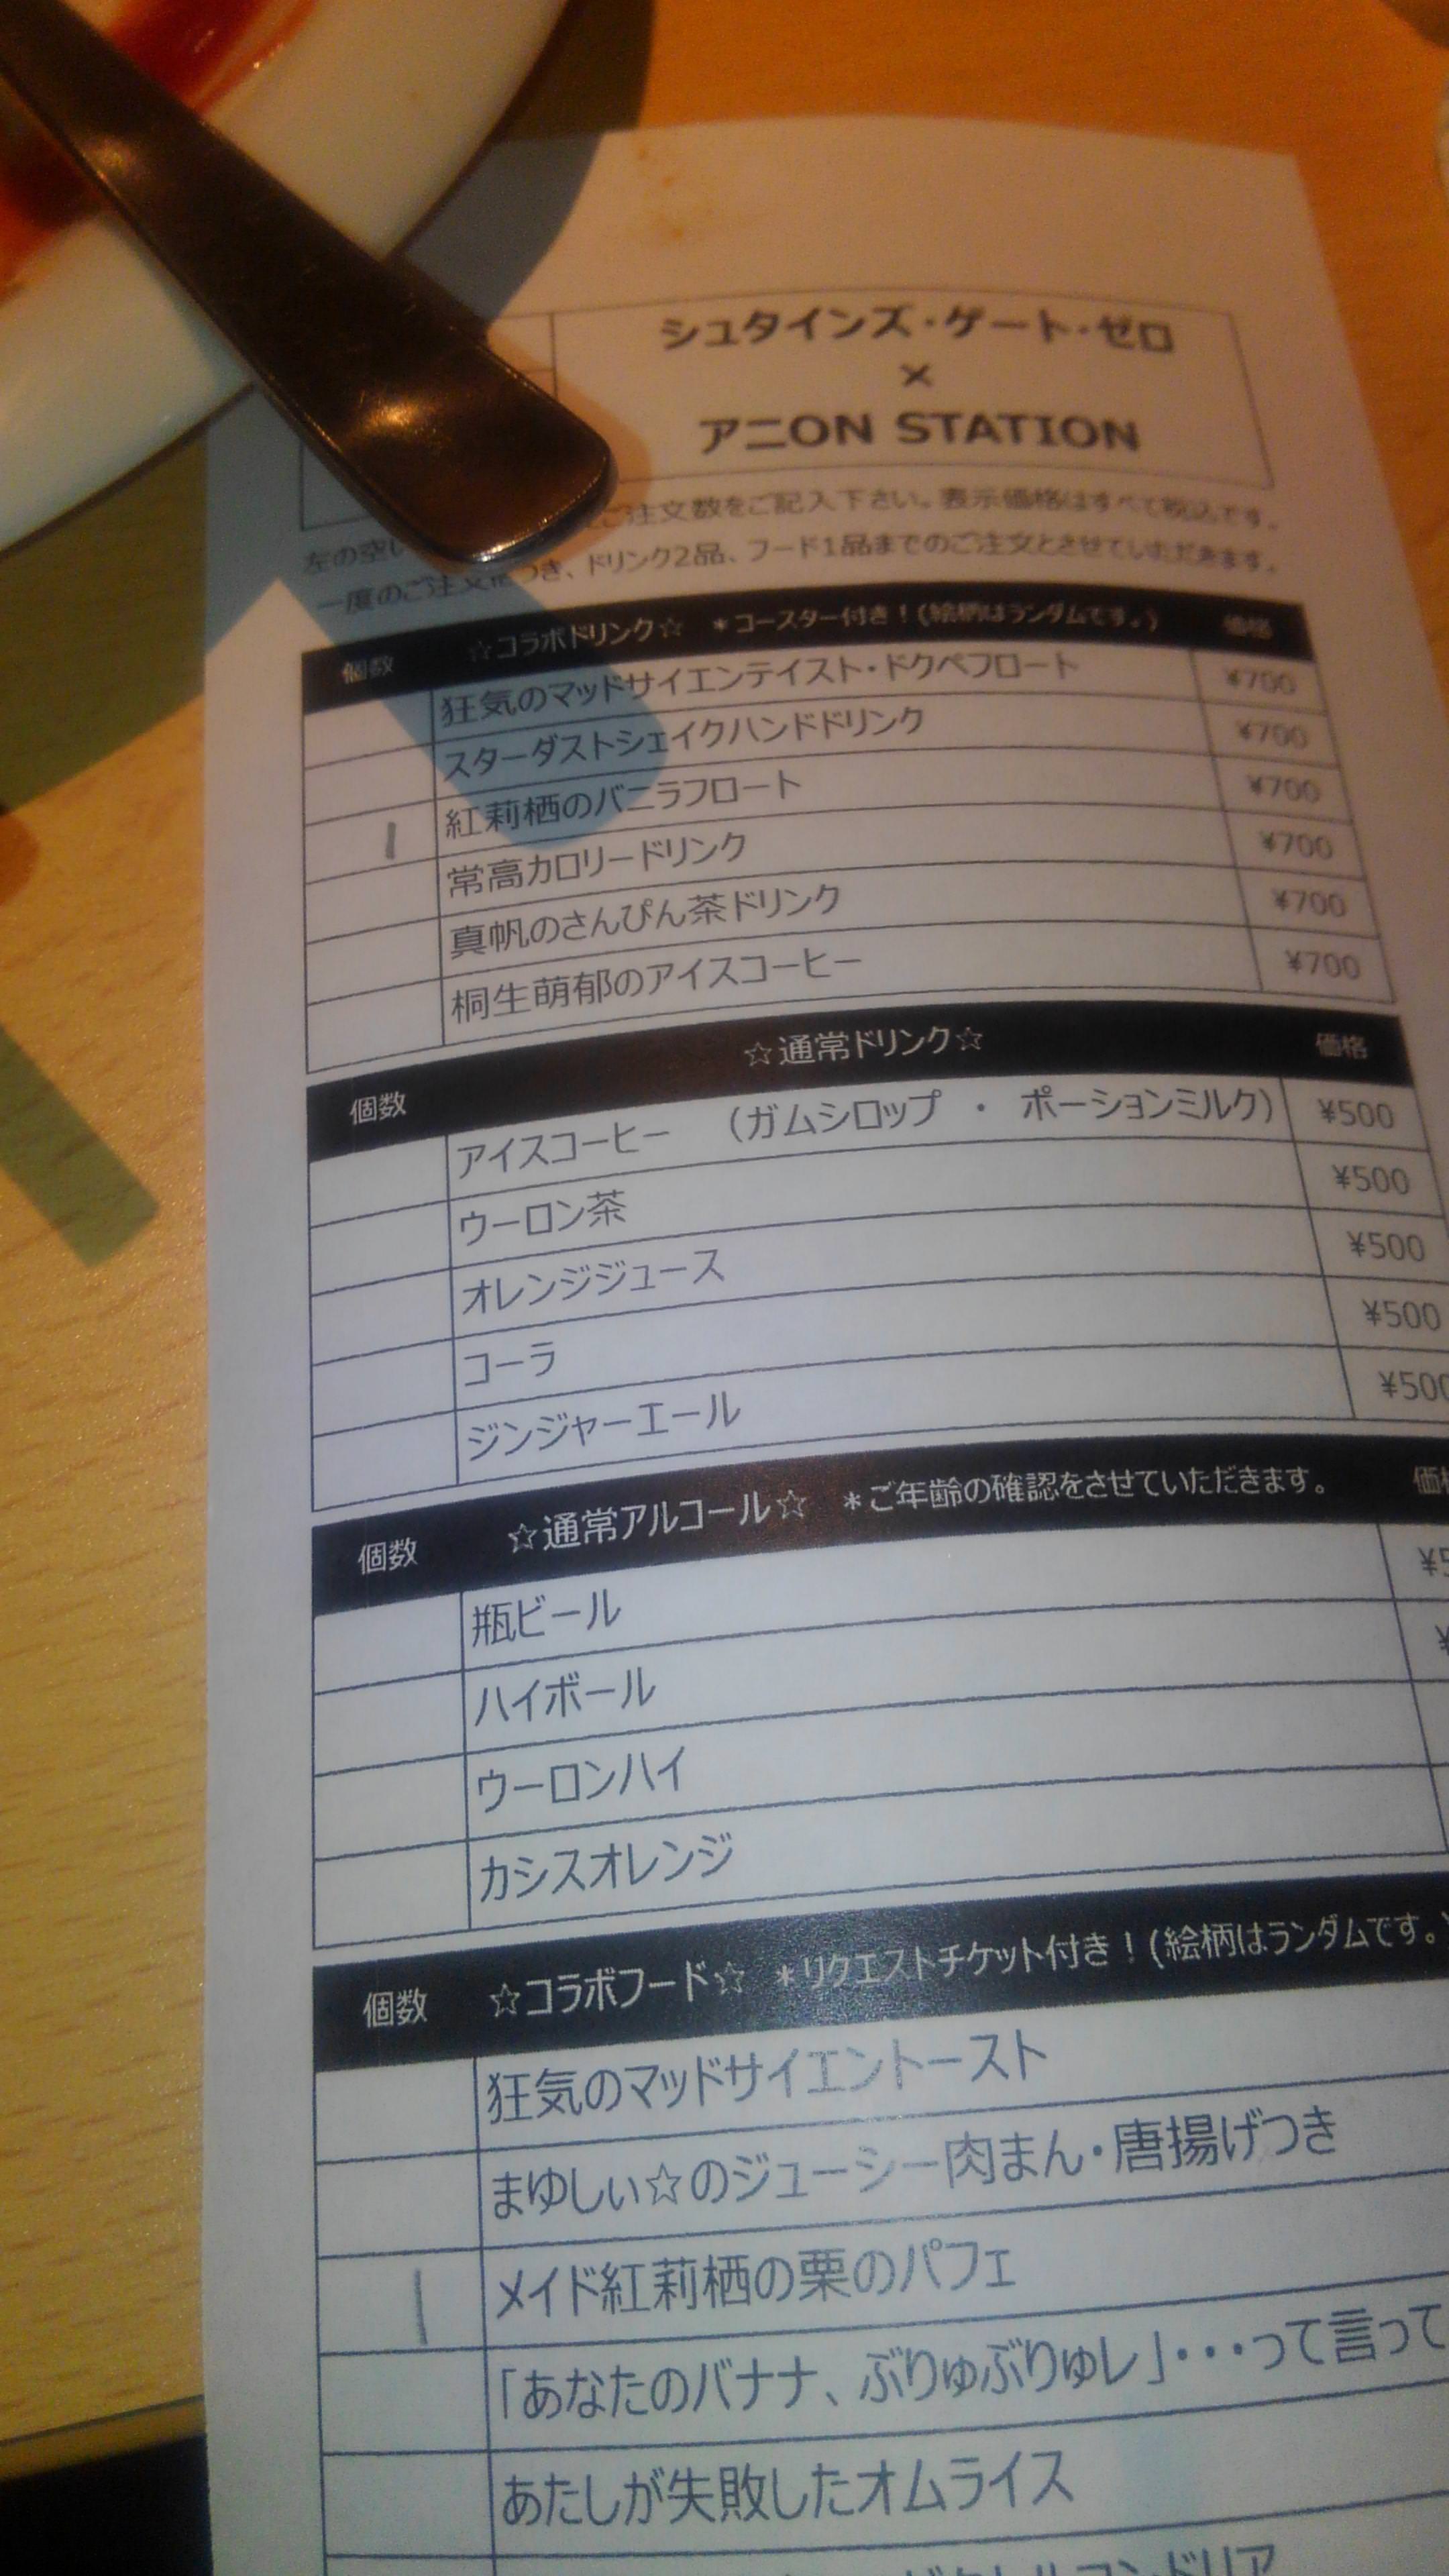 シュタインズ・ゲート・ゼロ
×
アニON STATION
左の空 ご注文数をご記入下さい。表示価格はすべて税込です。
一度のご注文 つき、ドリンク2品、フード1品までのご注文とさせていただきます。
個数 ☆コラボドリンク☆ *コースター付き！(絵柄はランダムです。) 価格
狂気のマッドサイエンテイスト・ドクペフロート ¥700
スターダストシェイクハンドドリンク ¥700
1 紅莉栖のバニラフロート ¥700
常高カロリードリンク ¥700
真帆のさんぴん茶ドリンク ¥700
桐生萌郁のアイスコーヒー ¥700
個数 ☆通常ドリンク☆ 価格
アイスコーヒー （ガムシロップ ・ ポーションミルク） ¥500
ウーロン茶 ¥500
オレンジジュース ¥500
コーラ ¥500
ジンジャーエール ¥500
個数 ☆通常アルコール☆ *ご年齢の確認をさせていただきます。 価
瓶ビール ¥5
ハイボール ¥
ウーロンハイ
カシスオレンジ
個数 ☆コラボフード☆ *リクエストチケット付き！(絵柄はランダムです。)
狂気のマッドサイエントースト
まゆしぃ☆のジューシー肉まん・唐揚げつき
1 メイド紅莉栖の栗のパフェ
「あなたのバナナ、ぶりゅぶりゅレ」・・・って言って
あたしが失敗したオムライス